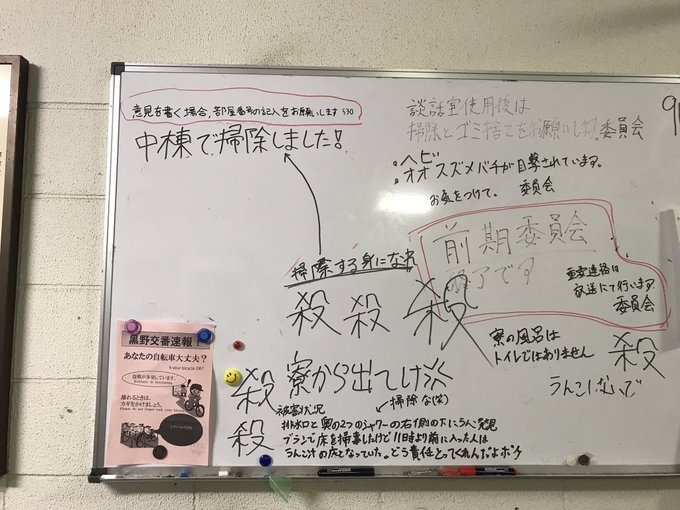 意見を書く場合、部屋番号の記入をお願いします 530
中棟で掃除しました!!
談話室使用後は
掃除とゴミ捨てをお願いします。委員会
・ヘビ
・オオスズメバチが目撃されています。
お気をつけて。 委員会
前期委員会
終了です
重要連絡は
放送にて行います。
委員会
掃除する身になれ
殺 殺 殺
寮の風呂は
トイレではありません
殺
殺 寮から出てけ
殺
掃除な(笑)
被害状況
排水口と奥の2つのシャワーの右側の下に5こ発見
ブラシで床を掃事したけど11日時より前に入った人は
うんこ汁の床となっていた。どう責任とってくれんだよボケ
黒野交番速報!
あなたの自転車大丈夫?
Is your bicycle OK?
盗難が多発しています。
離れるときは、
カギをかけましょう。